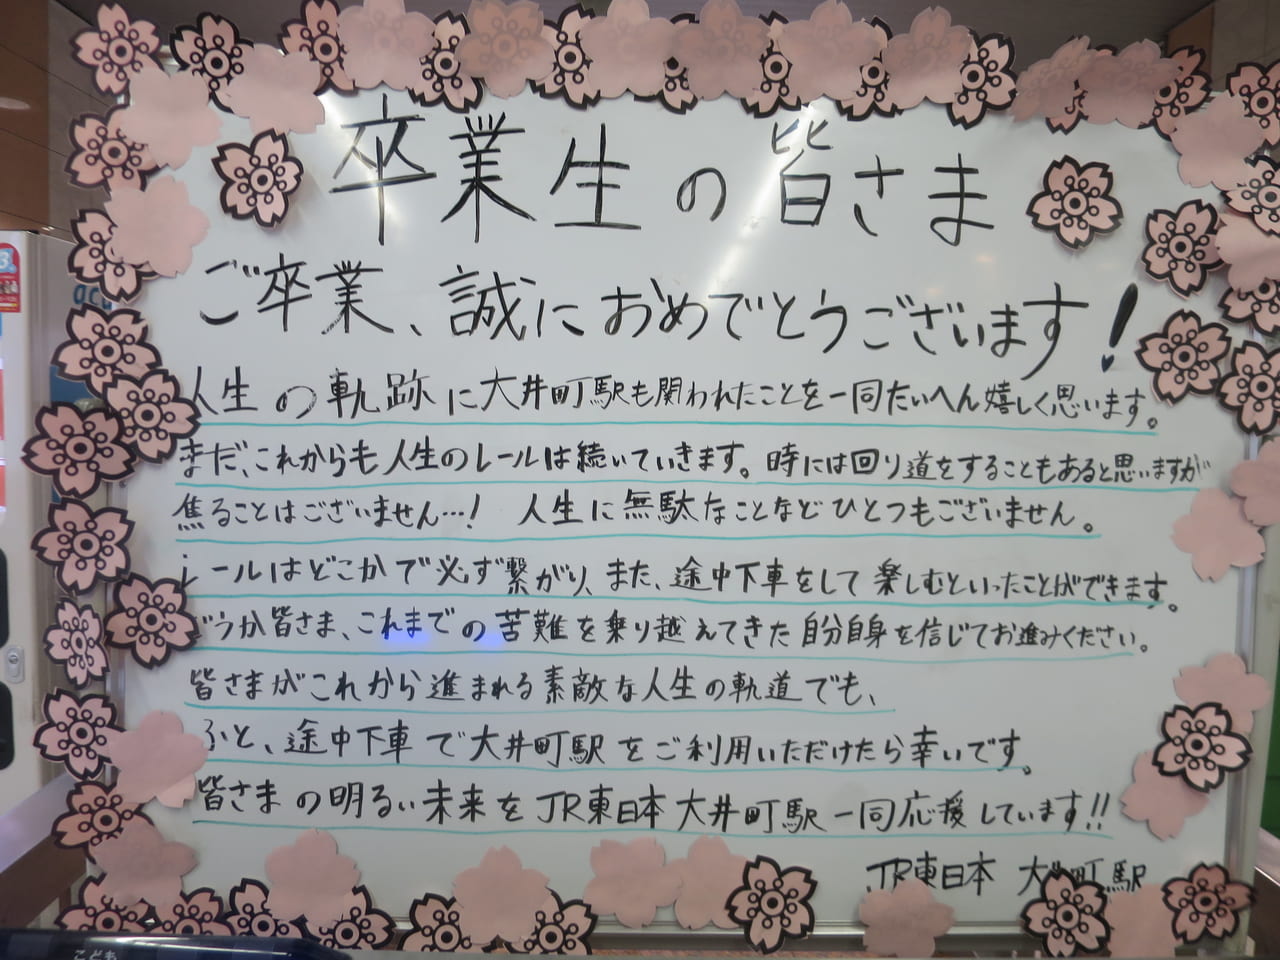 卒業生の皆さま
ご卒業、誠におめでとうございます!
人生の軌跡に大井町駅も関われたことを一同たいへん嬉しく思います。
まだ、これからも人生のレールは続いていきます。時には回り道をすることもあると思いますが
焦ることはございません…! 人生に無駄なことなどひとつもございません。
レールはどこかで必ず繋がり、また、途中下車をして楽しむといったことができます。
どうか皆さま、これまでの苦難を乗り越えてきた自分自身を信じてお進みください。
皆さまがこれから進まれる素敵な人生の軌道でも、
ふと、途中下車で大井町駅をご利用いただけたら幸いです。
皆さまの明るい未来をJR東日本大井町駅一同応援しています!!
JR東日本 大井町駅
こども